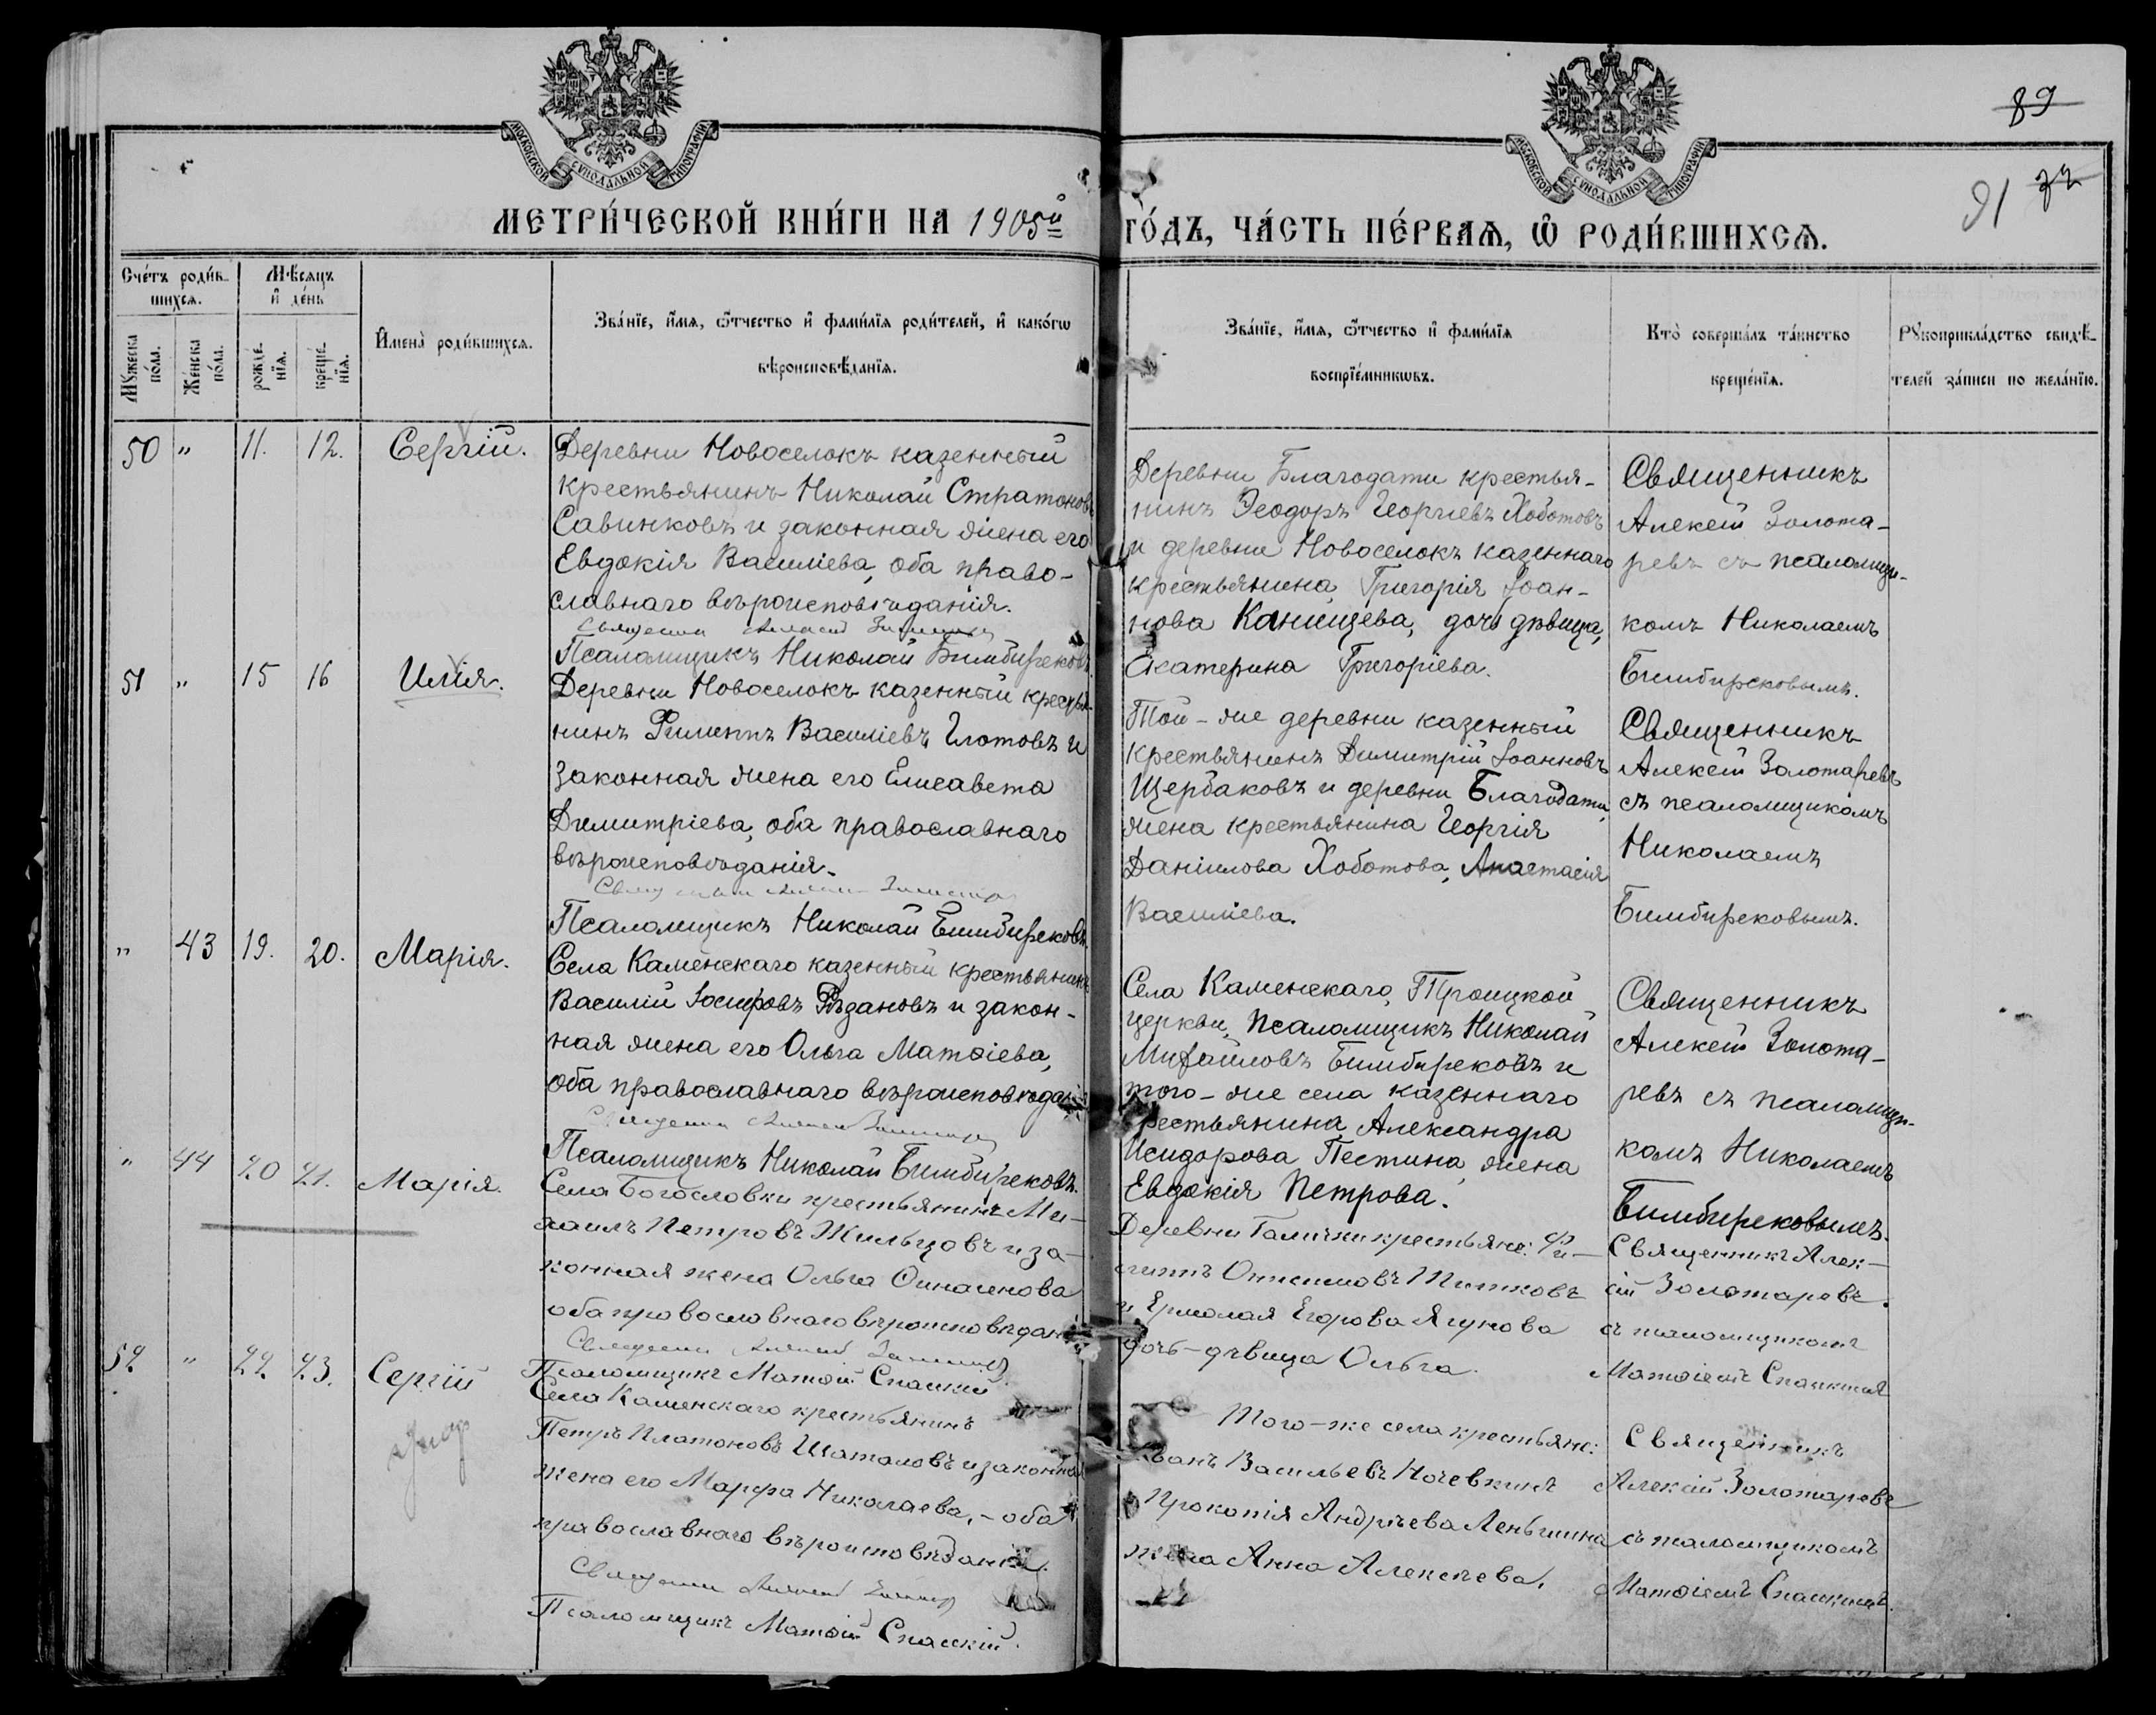 89
91 72
МОСКОВСКОЙ СѴНОДАЛЬНОЙ ТИПОГРАФІИ
МОСКОВСКОЙ СѴНОДАЛЬНОЙ ТИПОГРАФІИ
МЕТРИ́ЧЕСКОЙ КНИ́ГИ НА 1905й ГО́ДЪ, ЧА́СТЬ ПЕ́РВАѦ, Ѡ҆ РОДИ́ВШИХСѦ.
Счетъ роди́в-
шихсѧ.
Мѣсяцъ
и҆ де́нь
Мꙋ́жеска по́ла.
Же́нска по́ла.
рожде́-
нїѧ.
креще́-
нїѧ.
И҆мена̀ роди́вшихсѧ.
Зва́нїе, и҆́мѧ, ѻ҆́тчество и҆ фами́лїѧ роди́телей, и҆ како́гѡ
вѣроисповѣ́данїѧ.
Зва́нїе, и҆́мѧ, ѻ҆́тчество и҆ фами́лїѧ
воспрїе́мникѡвъ.
Кто̀ соверша́лъ та́инство
креще́нїѧ.
Рꙋкоприкла́дство свидѣ́-
телей за́писи по жела́нїю.
50 " 11. 12. Сергій.
Деревни Новоселокъ казенный
крестьянинъ Николай Стратоновъ
Савинковъ и законная жена его
Евдокія Василіева, оба право-
славнаго вѣроисповѣданія.
Священникъ Алексій Золотаревъ
Псаломщикъ Николай Бимбирековъ.
Деревни Благодати крестья-
нинъ Ѳеодоръ Георгіевъ Хоботовъ
и деревни Новоселокъ казеннаго
крестьянина Григорія Іоан-
нова Канищева, дочь дѣвица,
Екатерина Григоріева.
Священникъ
Алексій Золота-
ревъ съ псаломщи-
комъ Николаемъ
Бимбирековымъ.
51 " 15 16 Илія.
Деревни Новоселокъ казенный крестья-
нинъ Филиппъ Василіевъ Глотовъ и
законная жена его Елисавета
Димитріева, оба православнаго
вѣроисповѣданія.
Священникъ Алексій Золотаревъ
Псаломщикъ Николай Бимбирековъ.
Той-же деревни казенный
крестьянинъ Димитрій Іоанновъ
Щербаковъ и деревни Благодати,
жена крестьянина Георгія
Даніилова Хоботова, Анастасія
Василіева.
Священникъ
Алексій Золотаревъ
съ псаломщикомъ
Николаемъ
Бимбирековымъ.
" 43 19. 20. Марія.
Села Каменскаго казенный крестьянинъ
Василій Іосифовъ Рѣзановъ и закон-
ная жена его Ольга Матѳіева,
оба православнаго вѣроисповѣданія
Священникъ Алексій Золотаревъ
Псаломщикъ Николай Бимбирековъ.
Села Каменскаго, Троицкой
церкви, псаломщикъ Николай
Михаиловъ Бимбирековъ и
того-же села казеннаго
крестьянина Александра
Исидорова Пестина, жена
Евдокія Петрова.
Священникъ
Алексій Золота-
ревъ съ псаломщи-
комъ Николаемъ
Бимбирековымъ.
" 44 20 21. Марія.
Села Богословки крестьянинъ Ми-
хаилъ Петровъ Жильцовъ и за-
конная жена Ольга
оба православнаго вѣроисповѣданія
Священникъ Алексій Золотаревъ
Псаломщикъ Матѳій Спасскій.
Деревни Галички крестьяне: Фи-
липпъ Онисимовъ Титковъ
и Ермолая Егорова Ягунова
дочь-дѣвица Ольга.
Священникъ Алек-
сій Золотаревъ
съ псаломщикомъ
Матѳіемъ Спасскимъ
52 " 22 23. Сергій
Села Каменскаго крестьянинъ
Петръ Платоновъ Шаталовъ и законная
жена его Марфа Николаева, - оба
православнаго вѣроисповѣданія.
Священникъ Алексій Золотаревъ
Псаломщикъ Матѳій Спасскій.
Того-же села крестьяне:
Иванъ Васильевъ Ночевкинъ
Прокопія Андреева Леньшина
жена Анна Алексѣева.
Священникъ
Алексій Золотаревъ
съ псаломщикомъ
Матѳіемъ Спасскимъ.